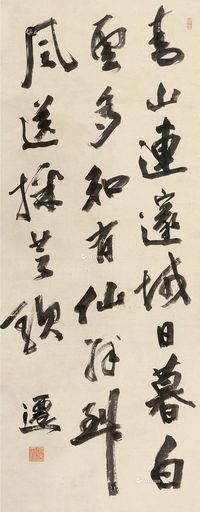 青山連城日暮白
雲多知有仙到
風送採芝歌